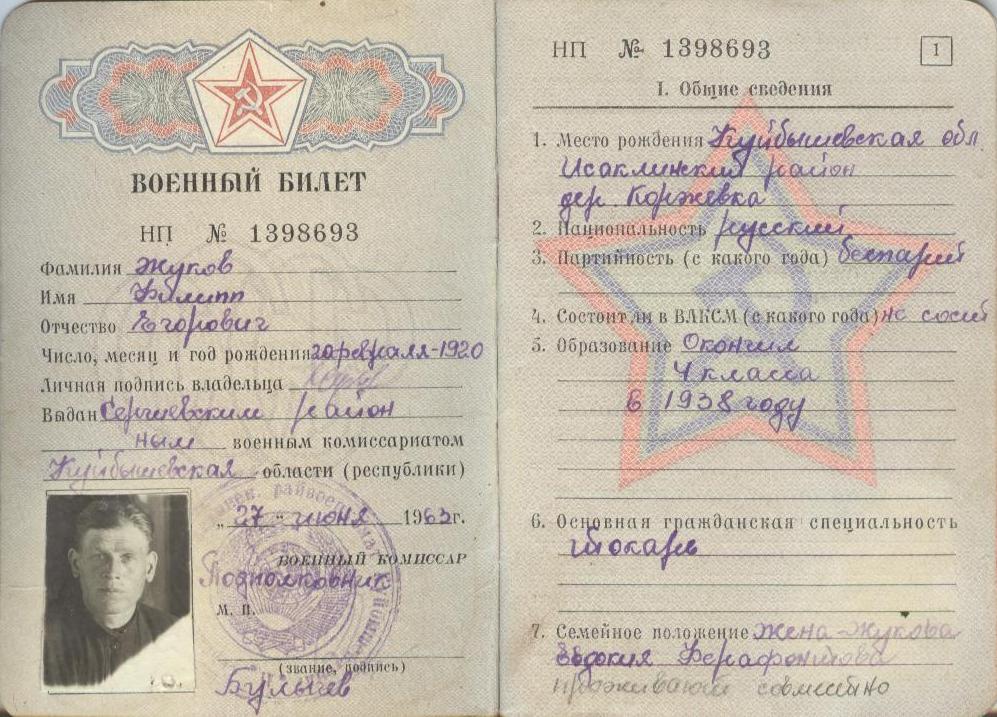 ВОЕННЫЙ БИЛЕТ
НП № 1398693
Фамилия Жуков
Имя Филипп
Отчество Егорович
Число, месяц и год рождения 20 февраля-1920
Личная подпись владельца
Выдан Сергиевским район
ным военным комиссариатом
Куйбышевская области (республики)
„27" июня 1963г.
ВОЕННЫЙ КОМИССАР
Подполковник
М. П.
(звание, подпись)
Булычев
НП № 1398693
1
I. Общие сведения
1. Место рождения Куйбышевская обл.
Исаклинский район
дер. Коржевка
2. Национальность русский
3. Партийность (с какого года) беспарт
4. Состоит ли в ВЛКСМ (с какого года) не сост
5. Образование Окончил
4 класса
в 1938 году
6. Основная гражданская специальность
токарь
7. Семейное положение жена-Жукова
Евдокия Ферафонтовa
проживают совместно